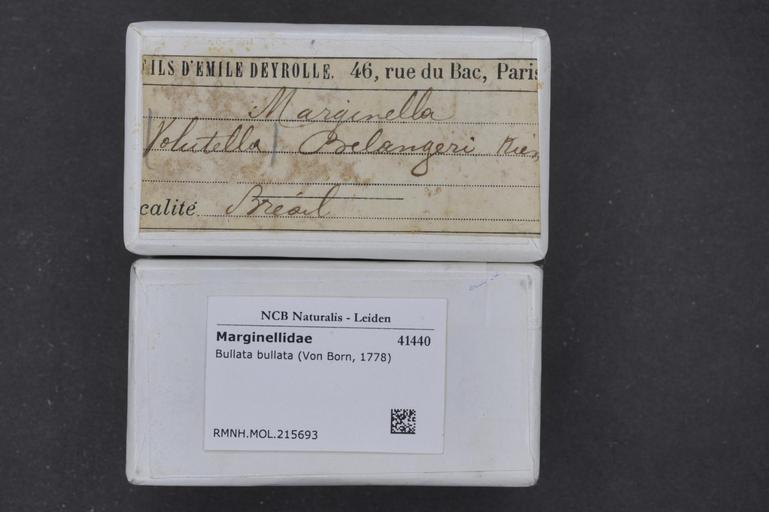 FILS D'EMILE DEYROLLE. 46, rue du Bac, Paris
Marginella
(Volutella) Belangeri Kien
calité Brésil
NCB Naturalis - Leiden
Marginellidae 41440
Bullata bullata (Von Born, 1778)
RMNH.MOL.215693